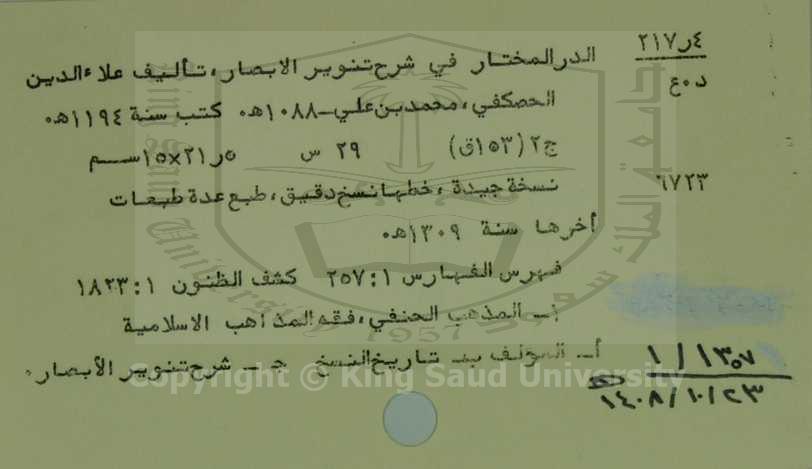 ٢١٧ر٤
د٠ع
الدرالمختار في شرح تنوير الابصار، تأليف علاءالدين
الحصكفي، محمد بن علي-١٠٨٨هـ. كتب سنة ١١٩٤هـ.
ج٢ (١٥٣ق) ٢٩ س ٢١×١٥ر٥سم
٦٧٢٣
نسخة جيدة، خطها نسخ دقيق، طبع عدة طبعات
أخرها سنة ١٣٠٩هـ.
فهرس الفهارس ١: ٢٥٧ كشف الظنون ١: ١٨٢٣
١- المذهب الحنفي، فقه المذاهب الاسلامية
أ- المؤلف ب- تاريخ النسخ ج- شرح تنوير الأبصار.
١/١٣٥٧
١٤٠٨/١٠/٢٣
Copyright © King Saud University
King Saud University
1957